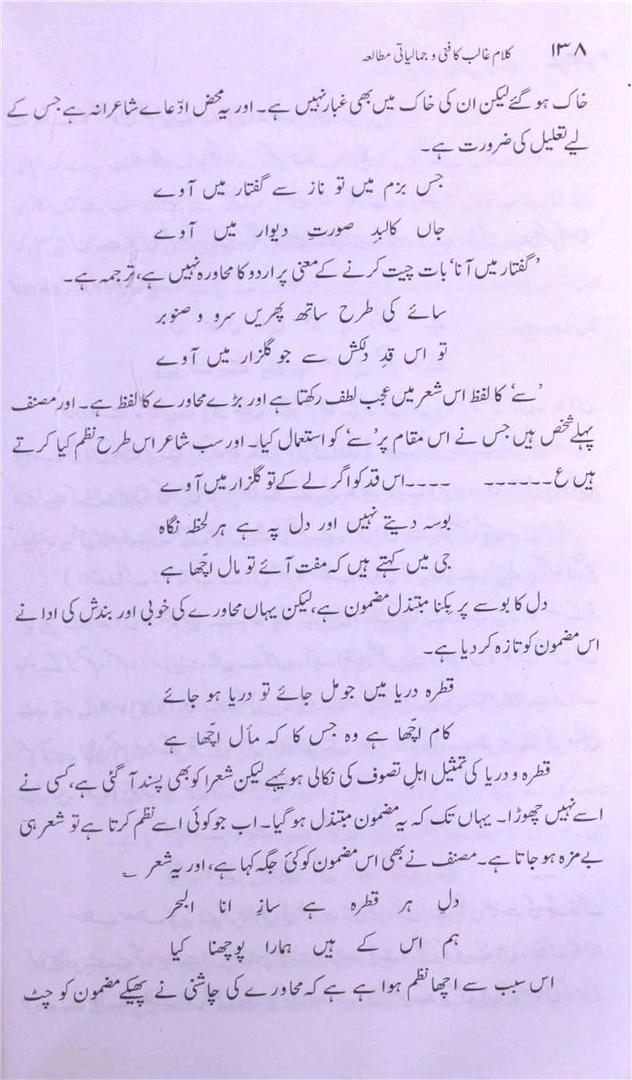 ۱۳۸ کلام غالب کا فنی و جمالیاتی مطالعہ
خاک ہو گئے لیکن ان کی خاک میں بھی غبار نہیں ہے۔ اور یہ محض ادّعاے شاعرانہ ہے جس کے
لیے تعلیل کی ضرورت ہے۔
جس بزم میں تو ناز سے گفتار میں آوے
جاں کالبدِ صورتِ دیوار میں آوے
’گفتار میں آنا‘ بات چیت کرنے کے معنی پر اردو کا محاورہ نہیں ہے، ترجمہ ہے۔
سائے کی طرح ساتھ پھریں سرو و صنوبر
تو اس قدِ دلکش سے جو گلزار میں آوے
’سے‘ کا لفظ اس شعر میں عجب لطف رکھتا ہے اور بڑے محاورے کا لفظ ہے۔ اور مصنف
پہلے شخص ہیں جس نے اس مقام پر ’سے‘ کو استعمال کیا۔ اور سب شاعر اس طرح نظم کیا کرتے
ہیں ع ۔۔۔۔۔۔ ۔۔۔۔اس قد کو اگر لے کے تو گلزار میں آوے
بوسہ دیتے نہیں اور دل پہ ہے ہر لحظہ نگاہ
جی میں کہتے ہیں کہ مفت آئے تو مال اچّھا ہے
دل کا بوسے پر بِکنا مبتذل مضمون ہے، لیکن یہاں محاورے کی خوبی اور بندش کی ادا نے
اس مضمون کو تازہ کر دیا ہے۔
قطرہ دریا میں جو مل جائے تو دریا ہو جائے
کام اچّھا ہے وہ جس کا کہ مآل اچّھا ہے
قطرہ و دریا کی تمثیل اہلِ تصوف کی نکالی ہوئی ہے لیکن شعرا کو بھی پسند آ گئی ہے، کسی نے
اسے نہیں چھوڑا۔ یہاں تک کہ یہ مضمون مبتذل ہو گیا۔ اب جو کوئی اسے نظم کرتا ہے تو شعر ہی
بے مزہ ہو جاتا ہے۔ مصنف نے بھی اس مضمون کو کئی جگہ کہا ہے، اور یہ شعر ؎
دلِ ہر قطرہ ہے سازِ انا البحر
ہم اس کے ہیں ہمارا پوچھنا کیا
اس سبب سے اچھا نظم ہوا ہے ہے کہ محاورے کی چاشنی نے پھیکے مضمون کو چٹ